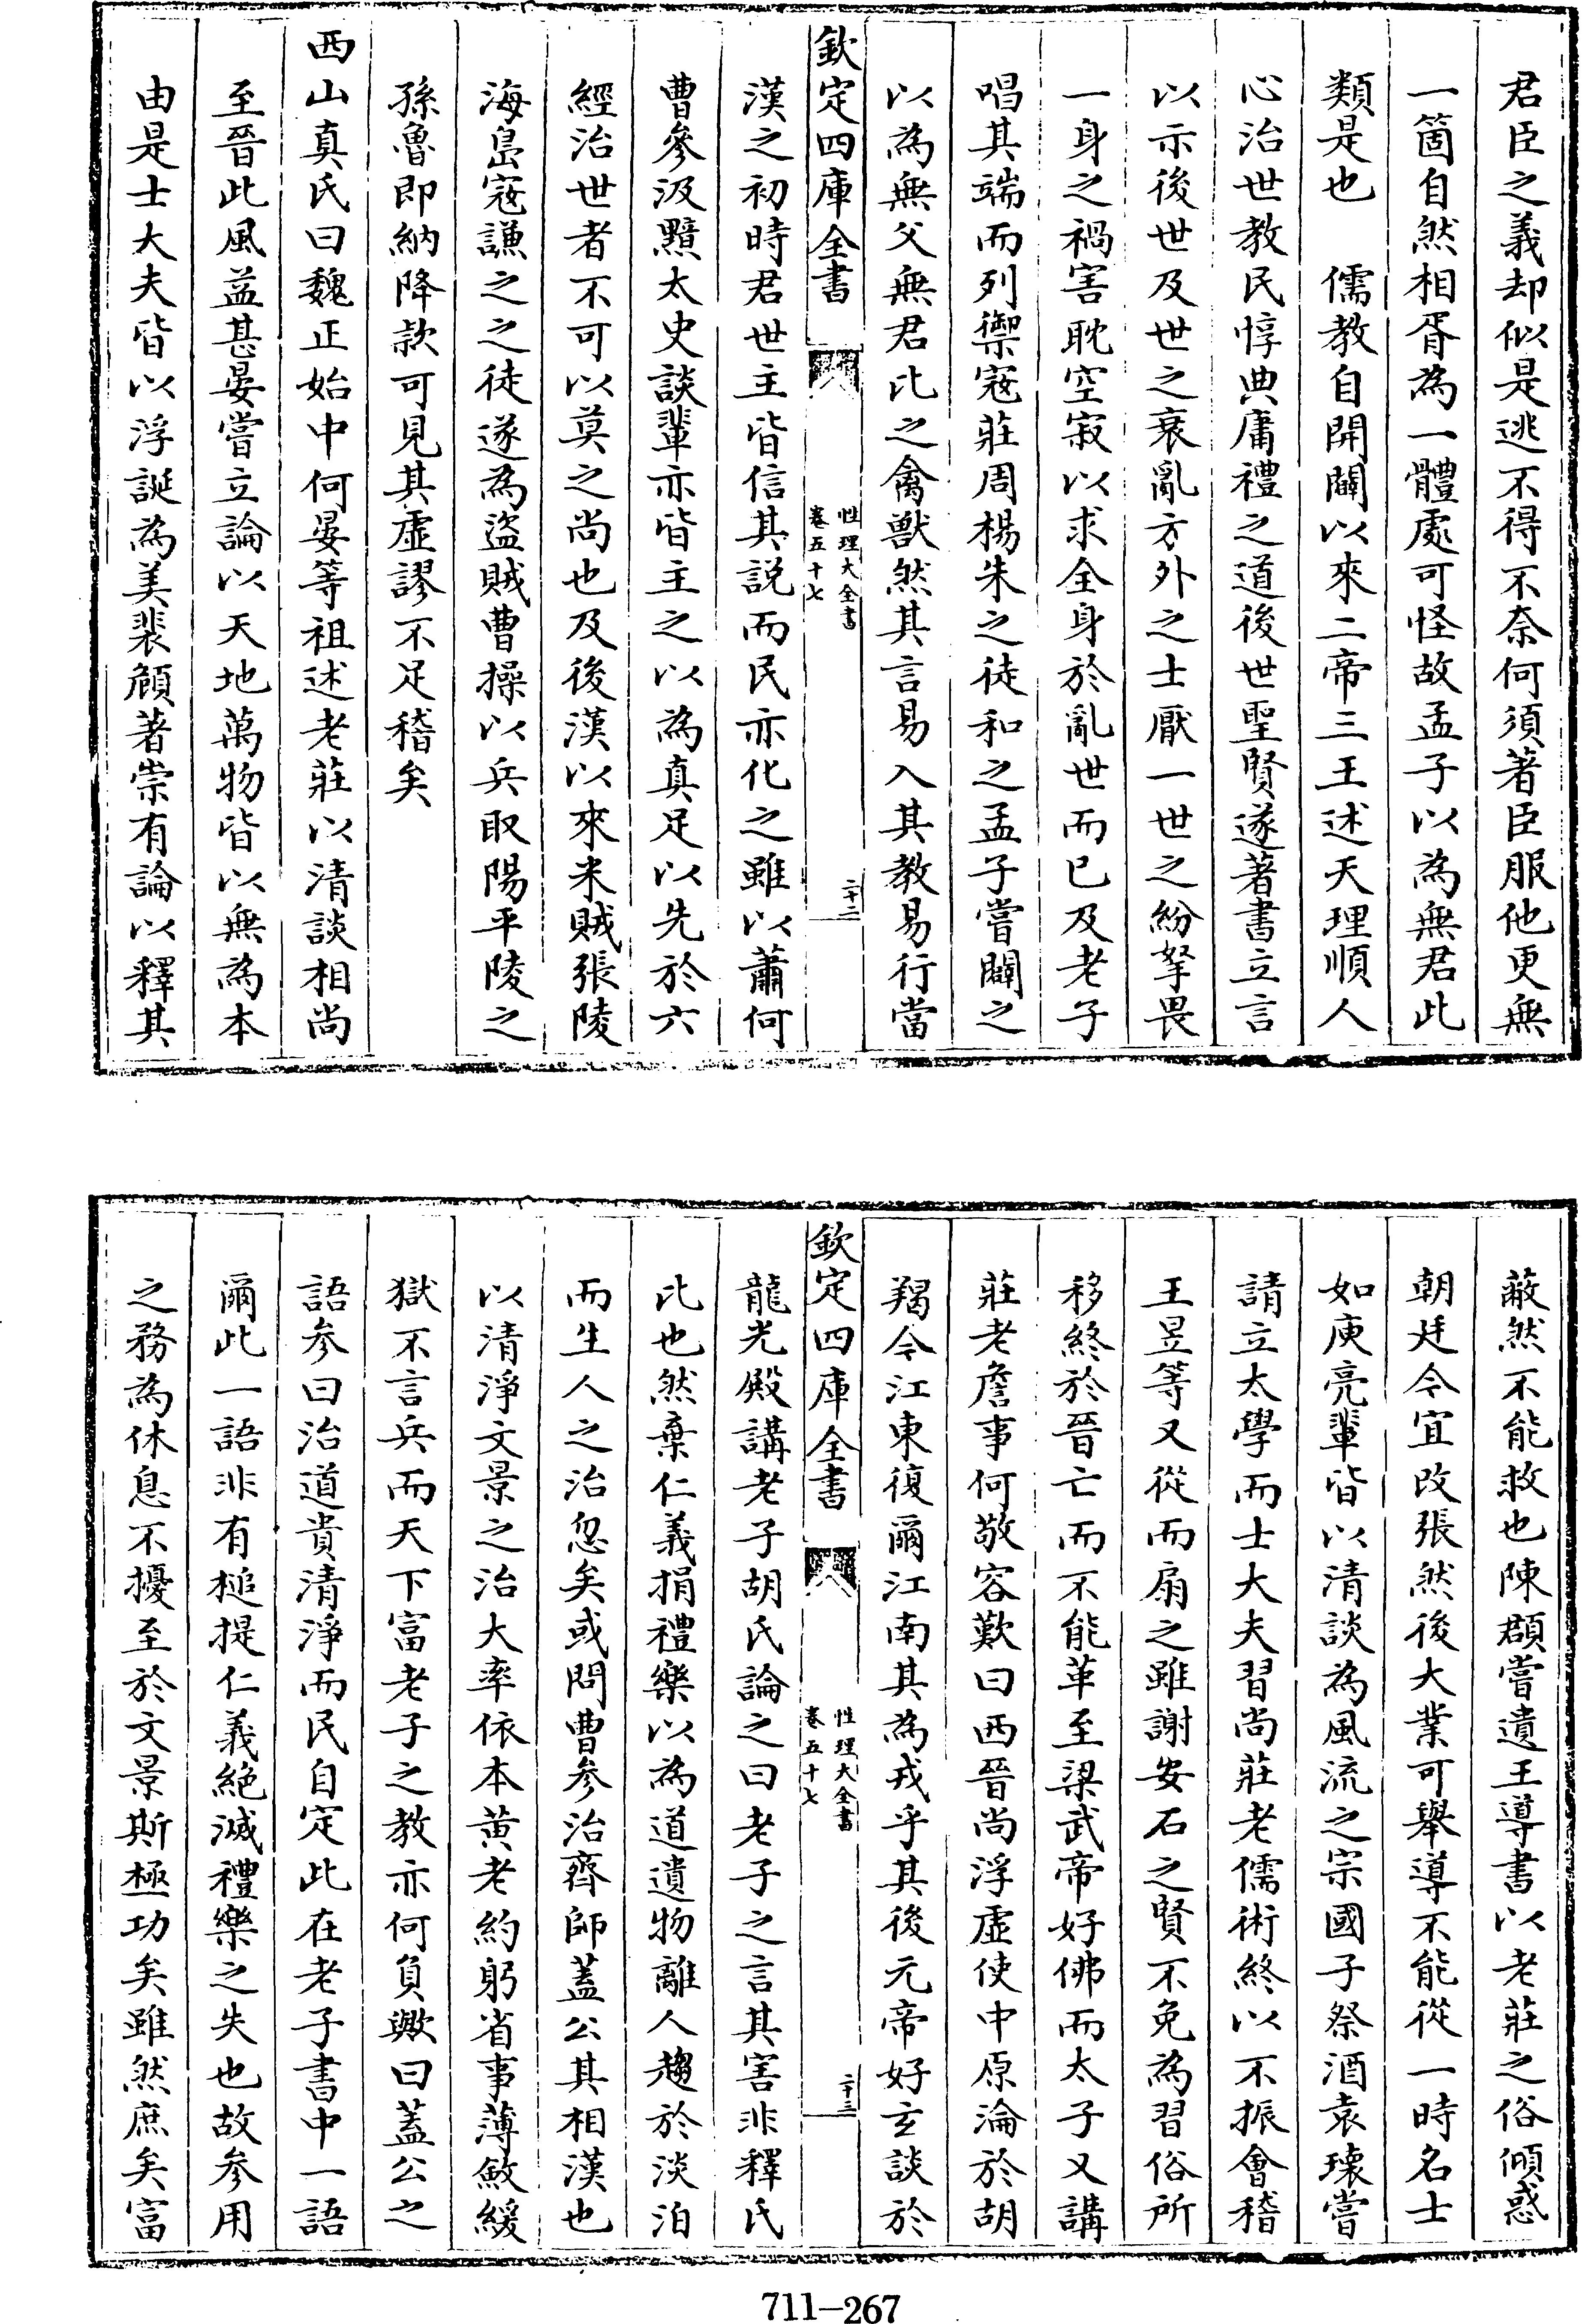 君臣之義却似是逃不得不奈何須著臣服他更無
一箇自然相胥為一體處可怪故孟子以為無君此
類是也　儒教自開闢以來二帝三王述天理順人
心治世教民惇典庸禮之道後世聖賢遂著書立言
以示後世及世之衰亂方外之士厭一世之紛拏畏
一身之禍害耽空寂以求全身於亂世而已及老子
唱其端而列禦寇莊周楊朱之徒和之孟子嘗闢之
以為無父無君比之禽獸然其言易入其教易行當
欽定四庫全書
性理大全書
卷五十七
二十二
漢之初時君世主皆信其説而民亦化之雖以蕭何
曹參汲黯太史談輩亦皆主之以為真足以先於六
經治世者不可以莫之尚也及後漢以來米賊張陵
海島寇謙之之徒遂為盜賊曹操以兵取陽平陵之
孫魯即納降款可見其虛謬不足稽矣
西山真氏曰魏正始中何晏等祖述老莊以清談相尚
至晉此風益甚晏嘗立論以天地萬物皆以無為本
由是士大夫皆以浮誕為美裴頠著崇有論以釋其
蔽然不能救也陳頵嘗遺王導書以老莊之俗傾惑
朝廷今宜改張然後大業可舉導不能從一時名士
如庾亮輩皆以清談為風流之宗國子祭酒袁瓌嘗
請立太學而士大夫習尚莊老儒術終以不振會稽
王昱等又從而扇之雖謝安石之賢不免為習俗所
移終於晉亡而不能革至梁武帝好佛而太子又講
莊老詹事何敬容歎曰西晉尚浮虛使中原淪於胡
羯今江東復爾江南其為戎乎其後元帝好玄談於
欽定四庫全書
性理大全書
卷五十七
二十三
龍光殿講老子胡氏論之曰老子之言其害非釋氏
比也然棄仁義捐禮樂以為道遺物離人趨於淡泊
而生人之治忽矣或問曹參治齊師蓋公其相漢也
以清淨文景之治大率依本黄老約躬省事薄斂緩
獄不言兵而天下富老子之教亦何負歟曰蓋公之
語参曰治道貴清淨而民自定此在老子書中一語
爾此一語非有槌提仁義絶滅禮樂之失也故参用
之務為休息不擾至於文景斯極功矣雖然庶矣富
711-267